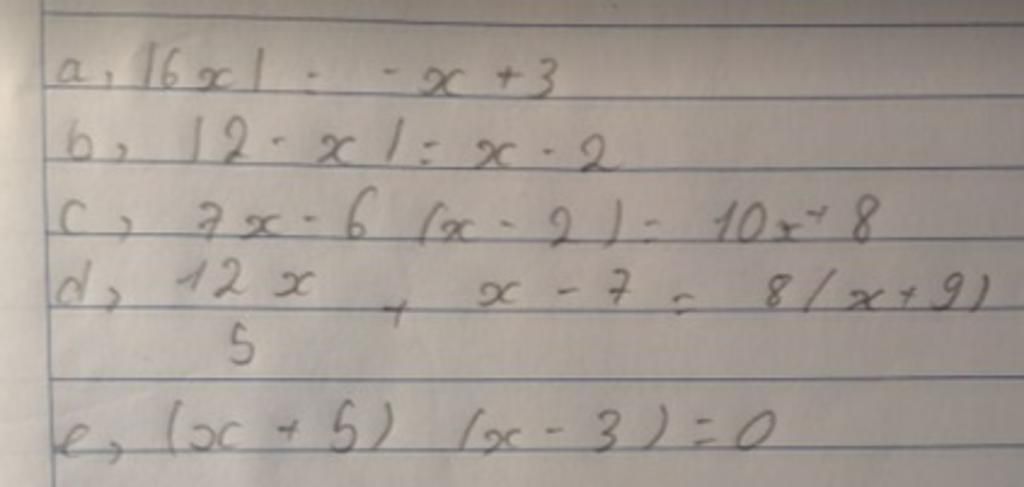 a, |6x| = -x + 3
b, |2 - x| = x - 2
c, 7x - 6 (x - 2) = 10x + 8
d, 12x/5 + x - 7 = 8(x + 9)
e, (x + 5) (x - 3) = 0